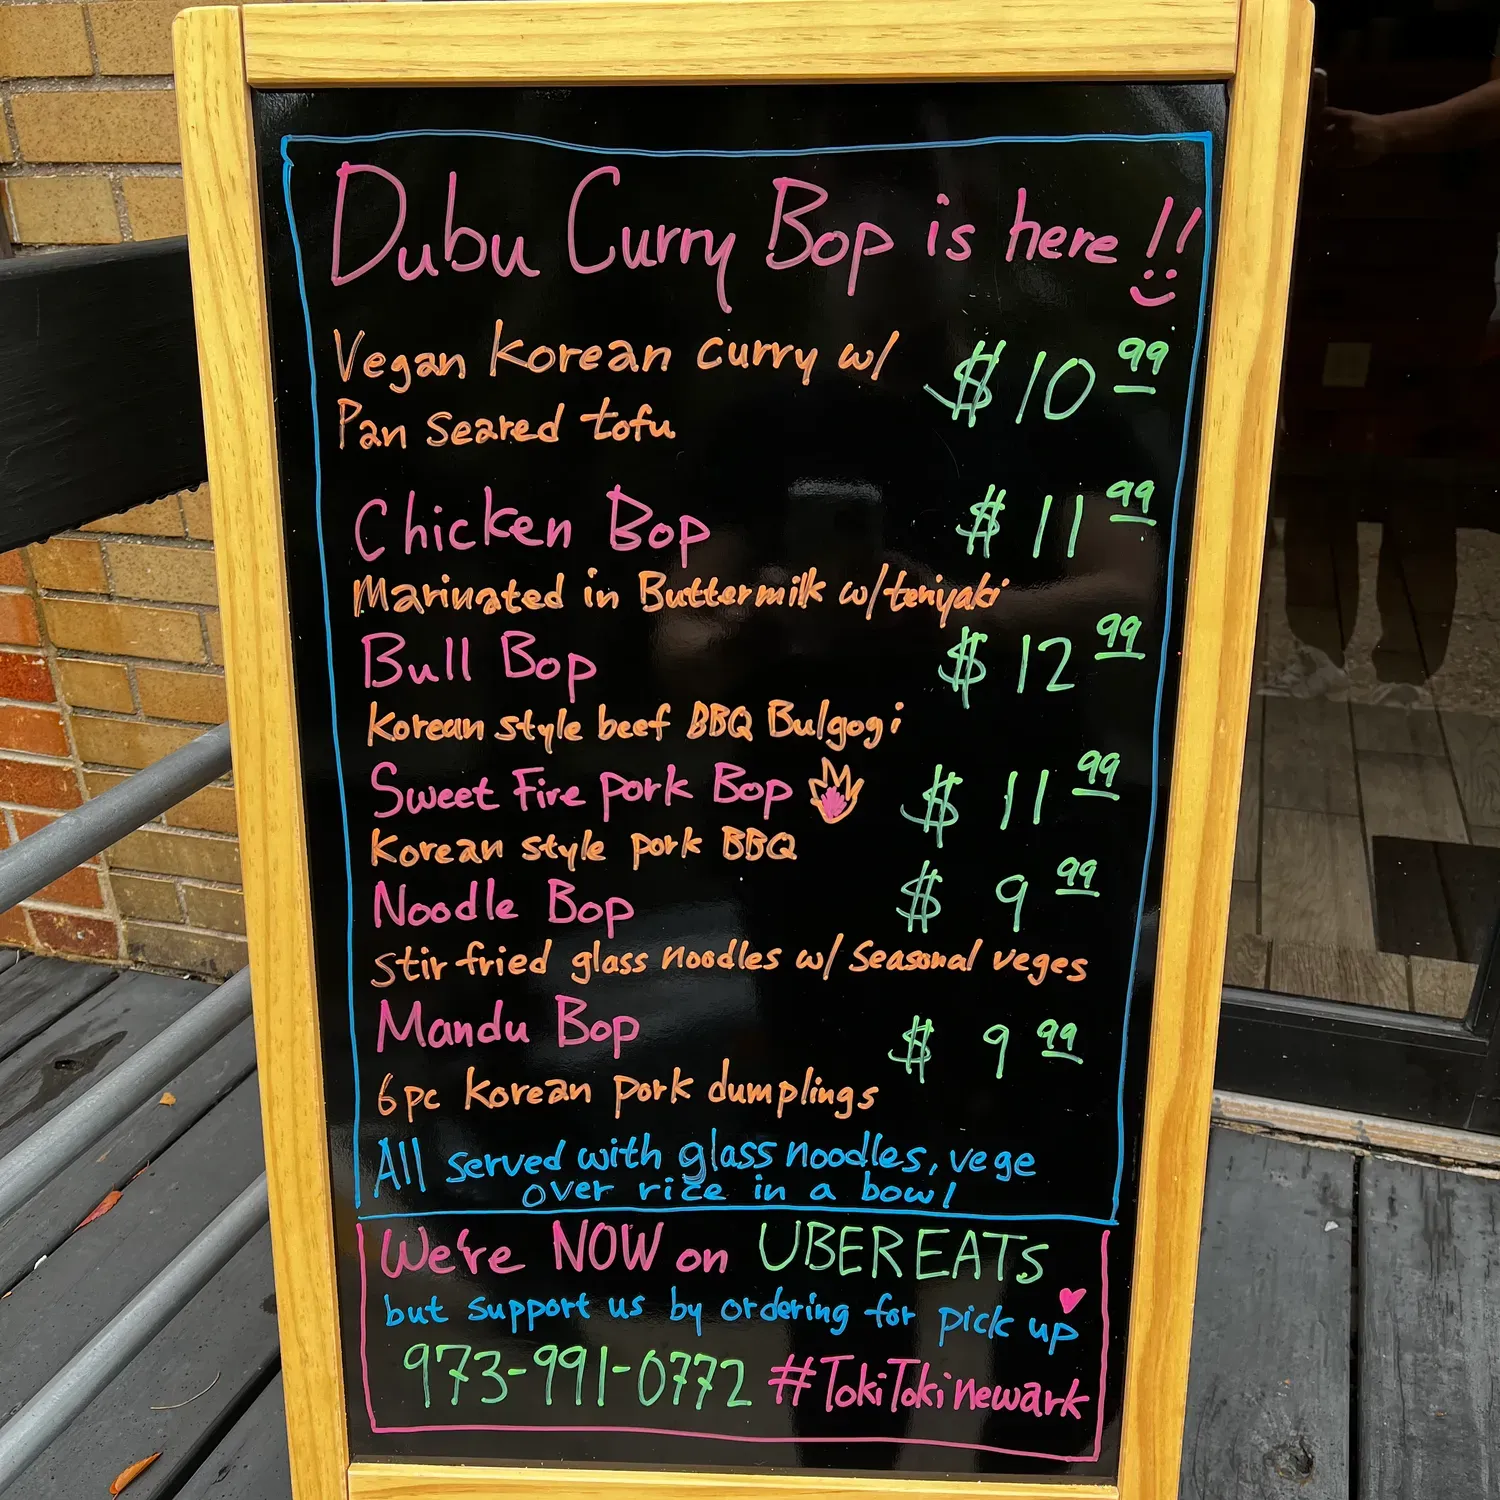 Dubu Curry Bop is here!!
Vegan Korean curry w/ $10.99
Pan seared tofu
Chicken Bop $11.99
Marinated in Buttermilk w/teriyaki
Bull Bop $12.99
Korean style beef BBQ Bulgogi
Sweet Fire Pork Bop $11.99
Korean style pork BBQ
Noodle Bop $9.99
Stir fried glass noodles w/ seasonal veges
Mandu Bop $9.99
6pc Korean pork dumplings
All served with glass noodles, vege
over rice in a bowl
We're NOW on UBER EATS
but support us by ordering for pick up
973-991-0772 #TokiTokinewark